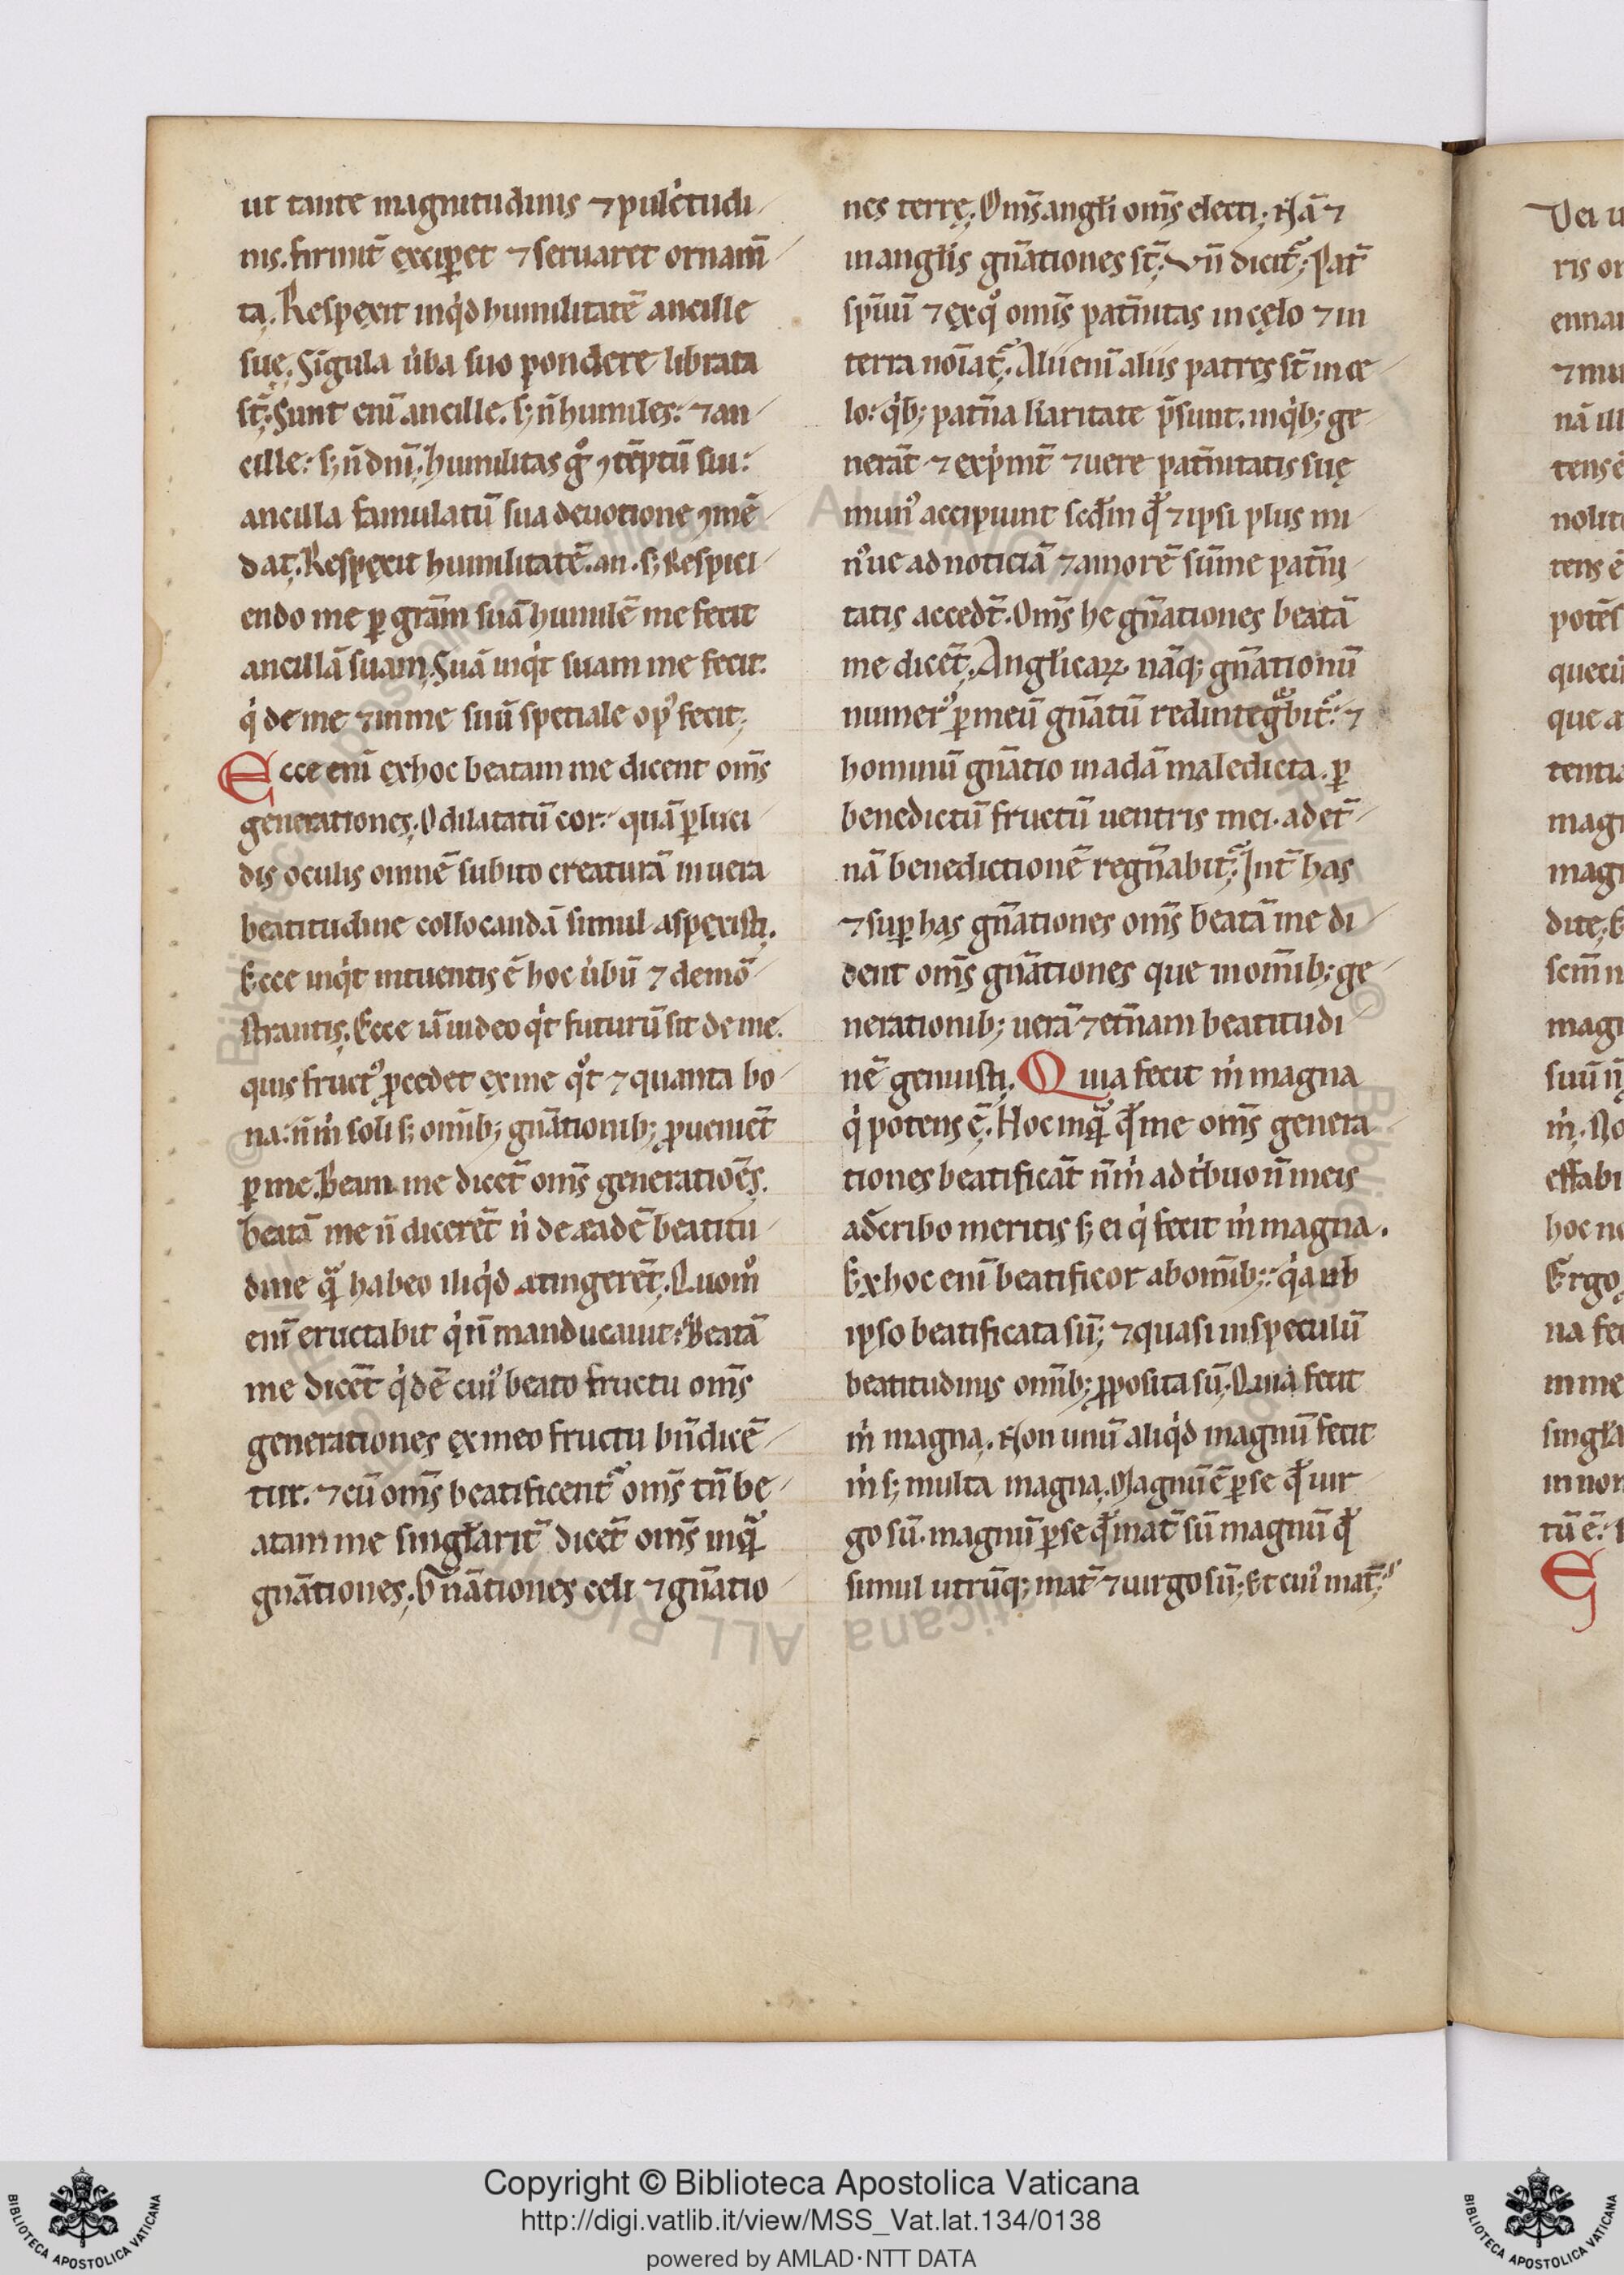 ut tante magnitudinis ⁊ pulc̉tudi
nis. firmit̄ exciꝑet ⁊ seruaret ornam̄
ta. Respexit inq̇d humilitatē ancille
sue. Sīgula u̇ba suo pondere librata
st̄. Sunt enī ancille. s; n̄ humiles: ⁊ an
cille: s; n̄ dn̄i. humilitas gͦ ꝯtēptū sui:
ancilla famulatū sua deuotione ꝯmē
dat. Respexit humilitatē. an. s; Respici
endo me ꝑ grām suā humilē me fecit
ancillā suam. Suā inq̇t suam me fecit:
q̇ de me ⁊ in me suū speciale opꝰ fecit;
Ecce enī ex hoc beatam me dicent om̄s
generationes. O dilatatū cor: quā ꝑluci
dis oculis omnē subito creaturā in uera
beatitudine collocandā simul aspexisti.
Ecce inq̇t intuentis ē hoc u̇bū ⁊ demō
strantis. Ecce iā uideo q̇t futurū sit de me.
quis fructꝰ ꝓcedet ex me qͦt ⁊ quanta bo
na: n̄ ṁ soli s; omīb; gn̄ationib; ꝓueniēt
ꝑ me. Beatā me dicēt om̄s generatiōes.
beatā me n̄ dicerēt ṅ de eadē beatitu
dine qᷓ habeo aliq̇d attingerēt. Quomͦ
enī eructabit q̇ n̄ manducauit: Beatā
me dicēt q̇dē cuiꝰ beato fructu om̄s
generationes ex meo fructu bn̄dicē
tur. ⁊ cū om̄s beatificentᷓ om̄s tn̄ be
atam me singlarit̄ dicēt om̄s inqᷓ
gn̄ationes. Gn̄ationes celi ⁊ gn̄atio
nes terrę. Om̄s angli om̄s electi. Nā ⁊
in anglis gn̄ationes st̄. Vn̄ dicitᷓ. Pat̄
spūū ⁊ ex qͦ omīs patn̄itas in cęlo ⁊ in
terra noīatᷓ. Alii enī aliis patres st̄ in ce
lo: q̇b; patn̄a karitate p̄sunt. in q̇b; ge
nerāt ⁊ exṗmt̄ ⁊ uere patn̄itatis suę
munꝰ accipiunt scd̄m qđ ⁊ ipsi plus mi
nꝰue ad noticiā ⁊ amorē sūme patn̄i
tatis accedt̄. Om̄s he gn̄ationes beatā
me dicēt. Anglicaꝝ nāq; gn̄ationū
numerꝰ ꝑ meū gn̄atū redintegᷓbitᷓ. ⁊
hominū gn̄atio in adā maledicta. ꝑ
benedictū fructū uentris mei. ad et̄
nā benedictionē regn̄abitᷓ. Int̄ has
⁊ suꝑ has gn̄ationes om̄s beatā me di
cent om̄s gn̄ationes que in omīb; ge
nerationib; uerā ⁊ etn̄am beatitudi
nē genuisti. Quia fecit ṁ magna
q̇ potens ē. Hoc inqᷓ qđ me om̄s genera
tiones beatificāt n̄ ṁ adtͥbuo n̄ meis
adscribo meritis s; ei q̇ fecit ṁ magna.
Ex hoc enī beatificor ab omīb;: q̇a ab
ipso beatificata sū; ⁊ quasi in speculū
beatitudinis omīb; ꝓposita sū. Quia fecit
ṁ magna. Non unū aliq̇d magnū fecit
ṁ s; multa magna. Magnū ē ꝑ se qđ uir
go sū. magnū ꝑ se qđ mat̄ sū magnū qđ
simul utrūq; mat̄ ⁊ uirgo sū; Et cuiꝰ mat̄;
Copyright © Biblioteca Apostolica Vaticana
http://digi.vatlib.it/view/MSS_Vat.lat.134/0138
powered by AMLAD·NTT DATA